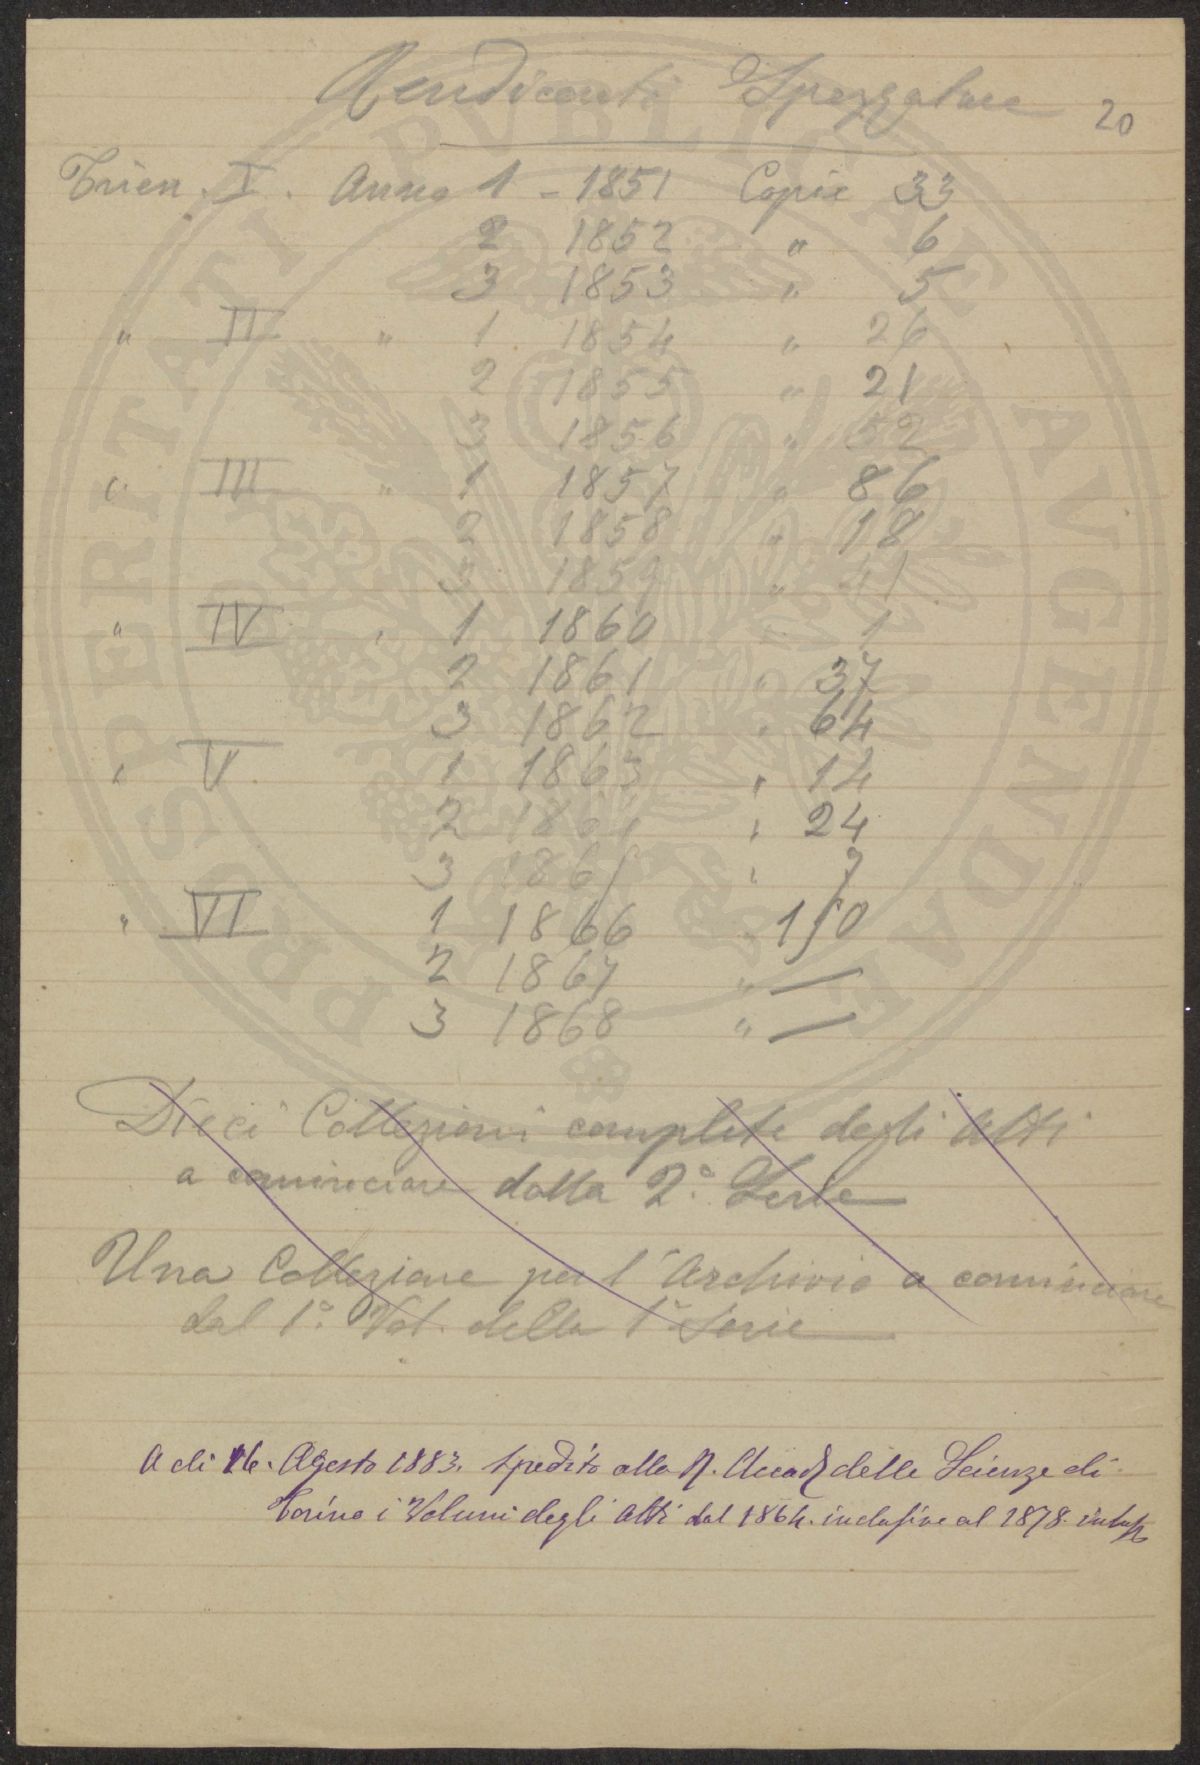 Rendiconti Spezzature 20
Trien. I. Anno 1 - 1851 Copie 33
2 1852 " 6
3 1853 " 5
" II " 1 1854 " 26
2 1855 " 21
3 1856 " 52
" III " 1 1857 " 86
2 1858 " 18
3 1859 " 41
" IV " 1 1860 " 1
2 1861 " 37
3 1862 " 64
" V 1 1863 " 14
2 1864 " 24
3 1865 " 7
" VI 1 1866 " 150
2 1867 " —
3 1868 " —
Dieci Collezioni complete degli Atti
a cominciare dalla 2.ª Serie
Una Collezione per l'Archivio a cominciare
dal 1.º Vol. della 1.ª Serie
A di 16. Agosto 1883. Spedito alla R. Accad. delle Scienze di
Torino i Volumi degli Atti dal 1864. inclusive al 1878.
PROSPERITATI PVBLICAE AVGENDAE